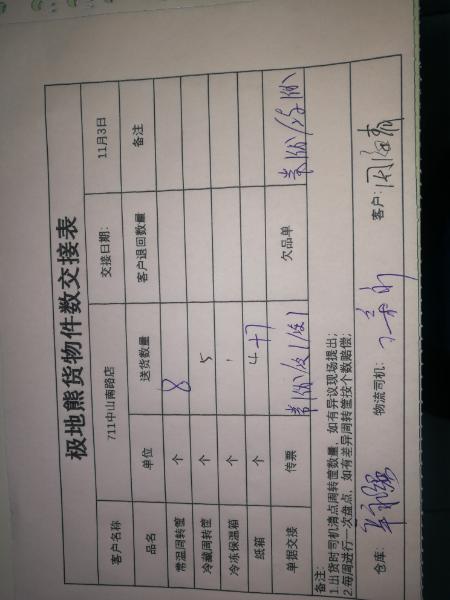 极地熊货物件数交接表
客户名称 711中山南路店 交接日期: 11月3日
品名 单位 送货数量 客户退回数量 备注
常温周转筐 个 8
冷藏周转筐 个 5
冷冻保温箱 个
纸箱 个 4+7
单据交接 传票 欠品单
备注:
1.出货时司机清点周转筐数量,如有异议现场提出;
2.每周进行一次盘点,如有差异周转筐按个数赔偿;
仓库: 物流司机: 客户: